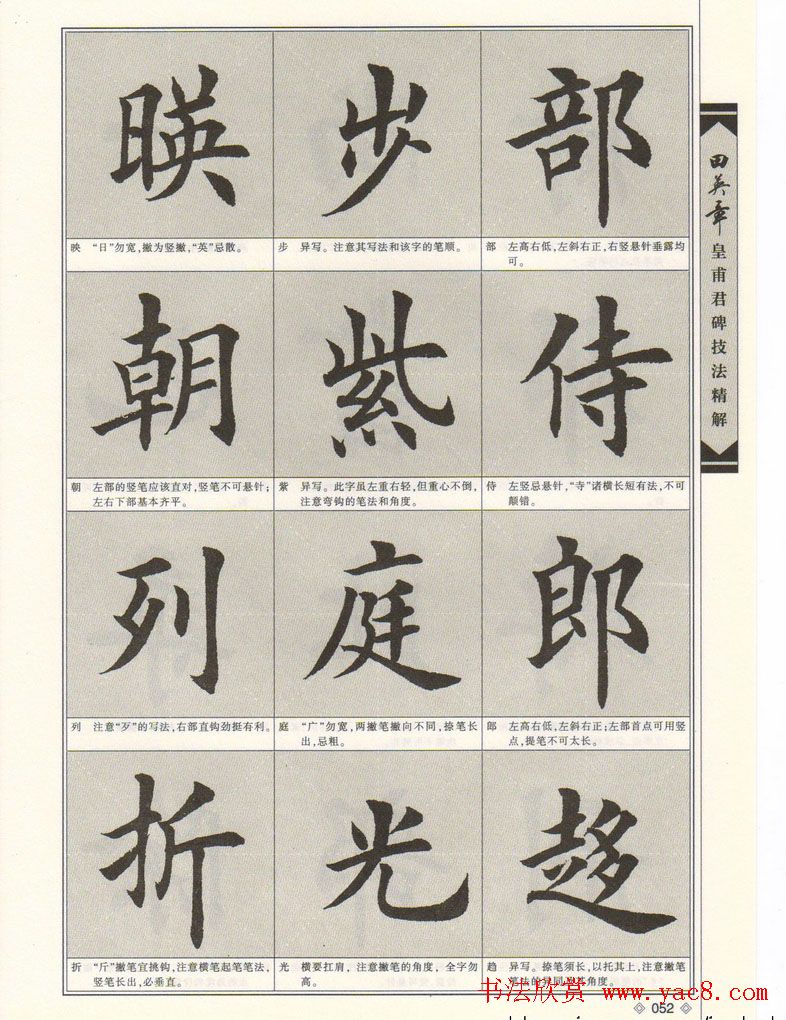 映
步
部
映 “日”勿宽,撇为竖撇,“英”忌散。
步 异写。注意其写法和该字的笔顺。
部 左高右低,左斜右正,右竖悬针垂露均
可。
朝
紫
侍
朝 左部的竖笔应该直对,竖笔不可悬针;
左右下部基本齐平。
紫 异写。此字虽左重右轻,但重心不倒,
注意弯钩的笔法和角度。
侍 左竖忌悬针,“寺”诸横长短有法,不可
颠错。
列
庭
郎
列 注意“歹”的写法,右部直钩劲挺有利。
庭 “广”勿宽,两撇笔撇向不同,捺笔长
出,忌粗。
郎 左高右低,左斜右正;左部首点可用竖
点,提笔不可太长。
折
光
趋
折 “斤”撇笔宜挑钩,注意横笔起笔笔法,
竖笔长出,必垂直。
光 横要扛肩,注意撇笔的角度,全字勿
高。
趋 异写。捺笔须长,以托其上,注意撇笔
笔法的异同及其角度。
田英章
皇甫君碑技法精解
书法欣赏 www.yac8.com
052